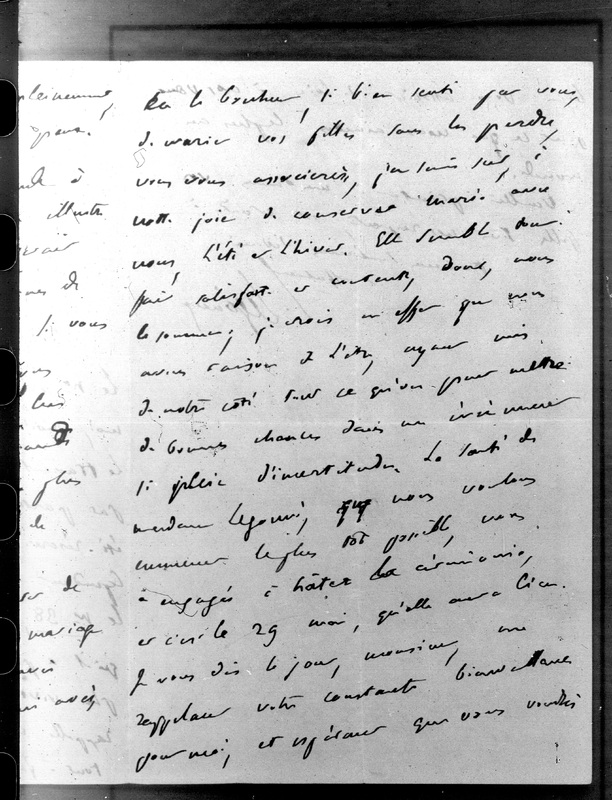 pleinement,
à
illustre
avait
de
si vous
les
plus
de
de
mariage
avez
Et le bonheur, si bien senti par vous,
de marier vos filles sans les perdre,
vous vous associerez, j'en suis sûr, à
notre joie de conserver mariée avec
nous, l'été et l'hiver. Elle semble
satisfaite et contente, donc, nous
le sommes; je crois en effet que nous
avons raison de l'être, ayant mis
de notre côté tout ce qu'on peut mettre
de bonnes chances dans un évènement
si plein d'incertitudes. La santé de
madame Legouvé, que nous voulons
emmener le plus tôt possible, nous
a engagés à hâter la cérémonie,
et c'est le 29 mai, qu'elle aura lieu.
Je vous dis le jour, monsieur, me
rappelant votre constante bienveillance
pour moi, et espérant que vous voudrez